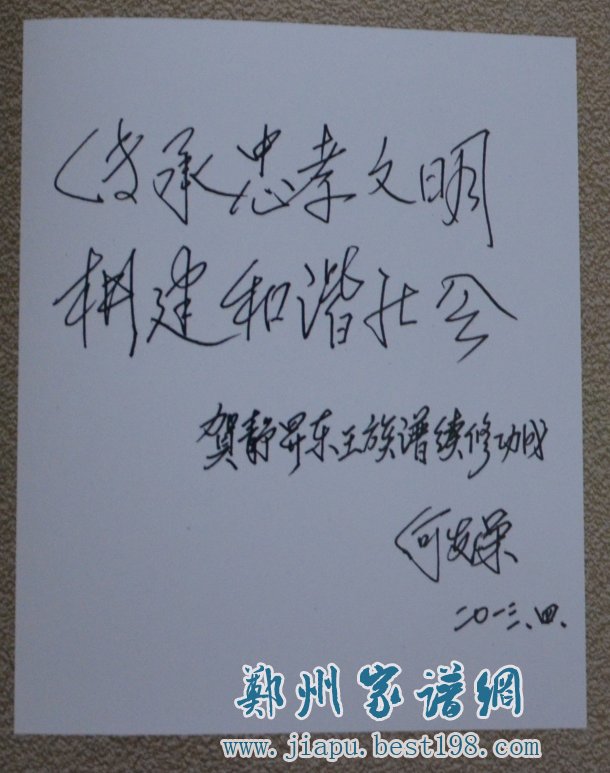 传承忠孝文明
构建和谐社会
贺静昇东王族谱续修功成
何发荣
二〇一三.四.
鄭州家譜網
www.jiapu.best198.com